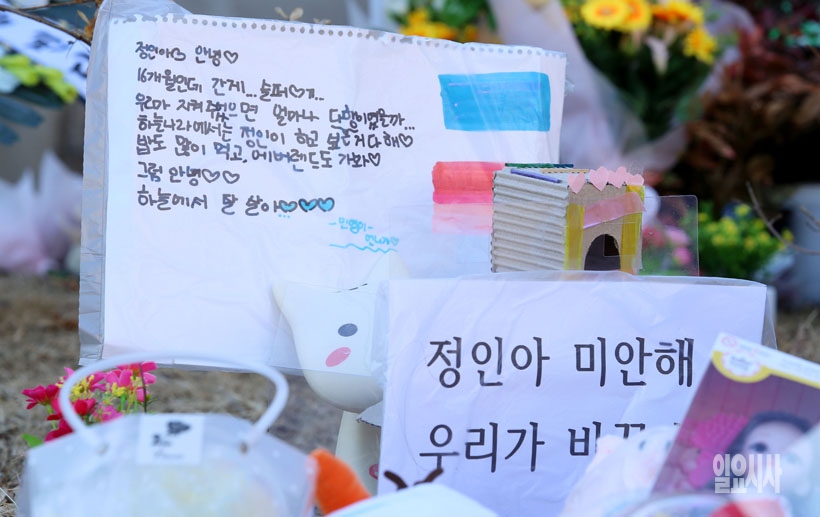 정인아 안녕♡
16개월인데 간게... 슬퍼...
우리가 지켜줬으면 얼마나 다행이었을까...
하늘나라에서는 정인이 하고 싶은거 다해♡
밥도 많이 먹고, 에버렌드도 가봐♡
그럼 안녕♡♡
하늘에서 잘 살아♡♡♡
언니가♡
정인아 미안해
우리가
일요시사